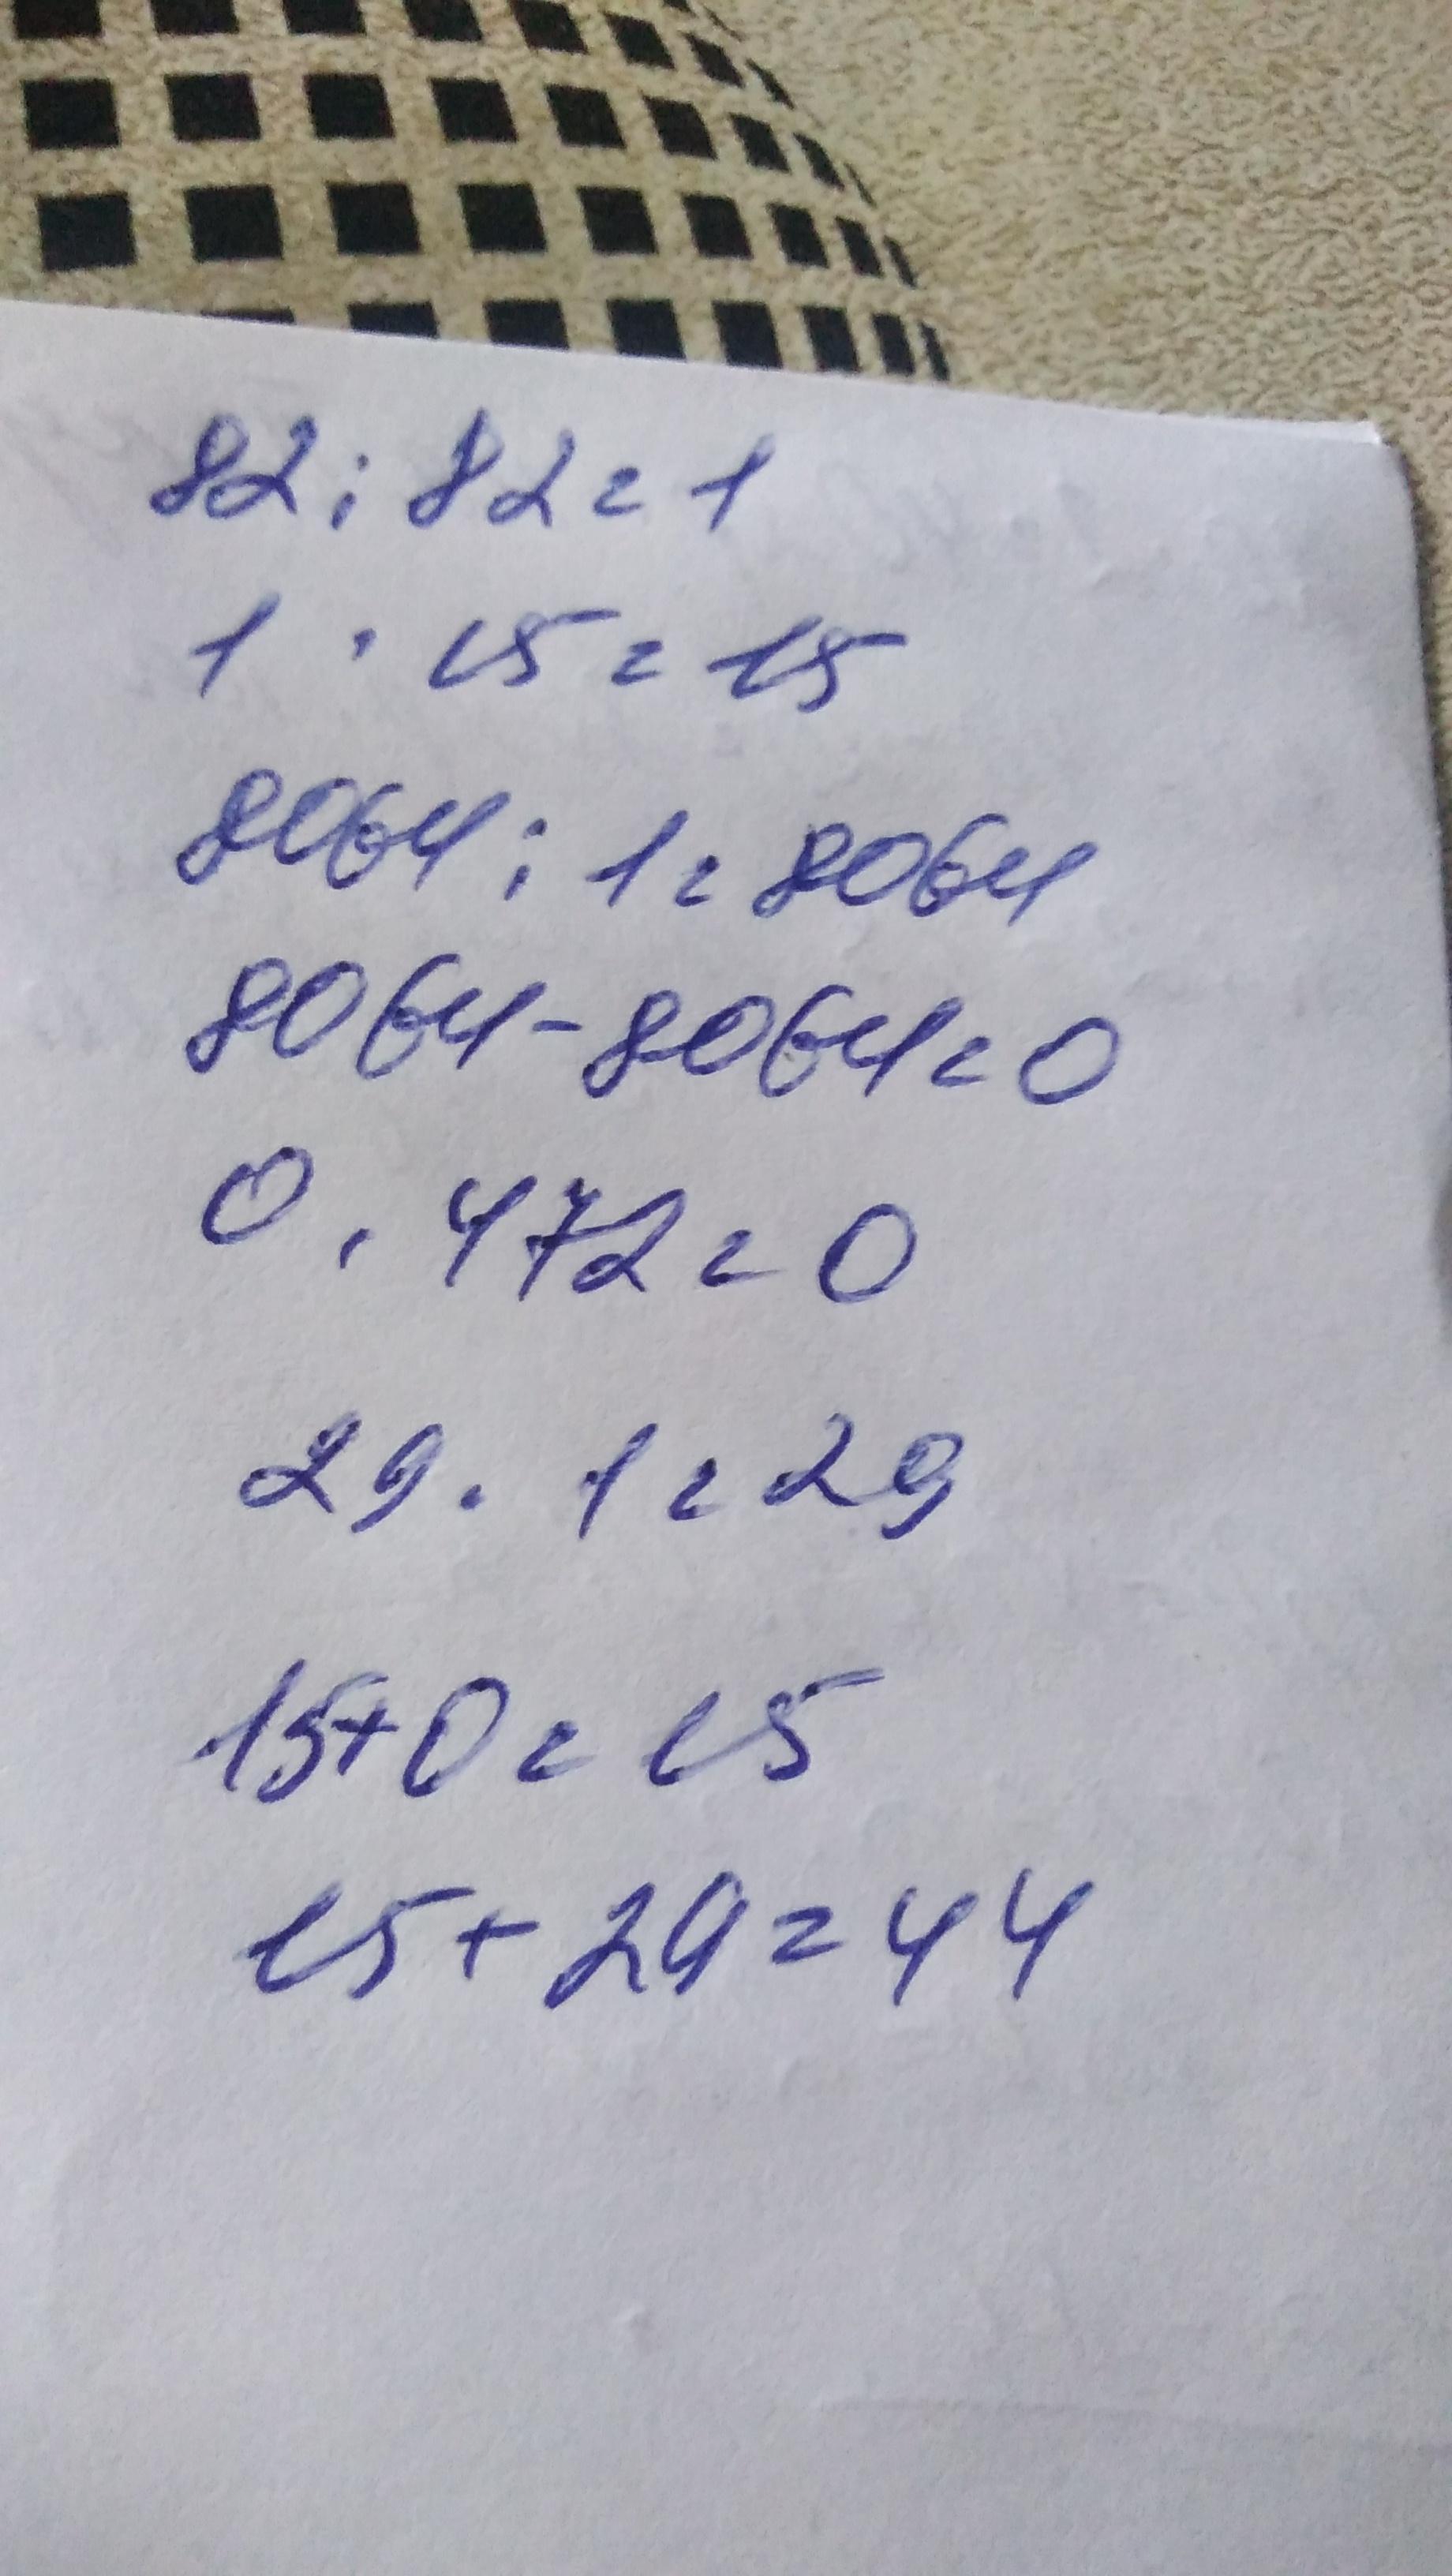 82 : 82 = 1
1 · 15 = 15
8064 : 1 = 8064
8064 - 8064 = 0
0 · 472 = 0
29 · 1 = 29
15 + 0 = 15
15 + 29 = 44